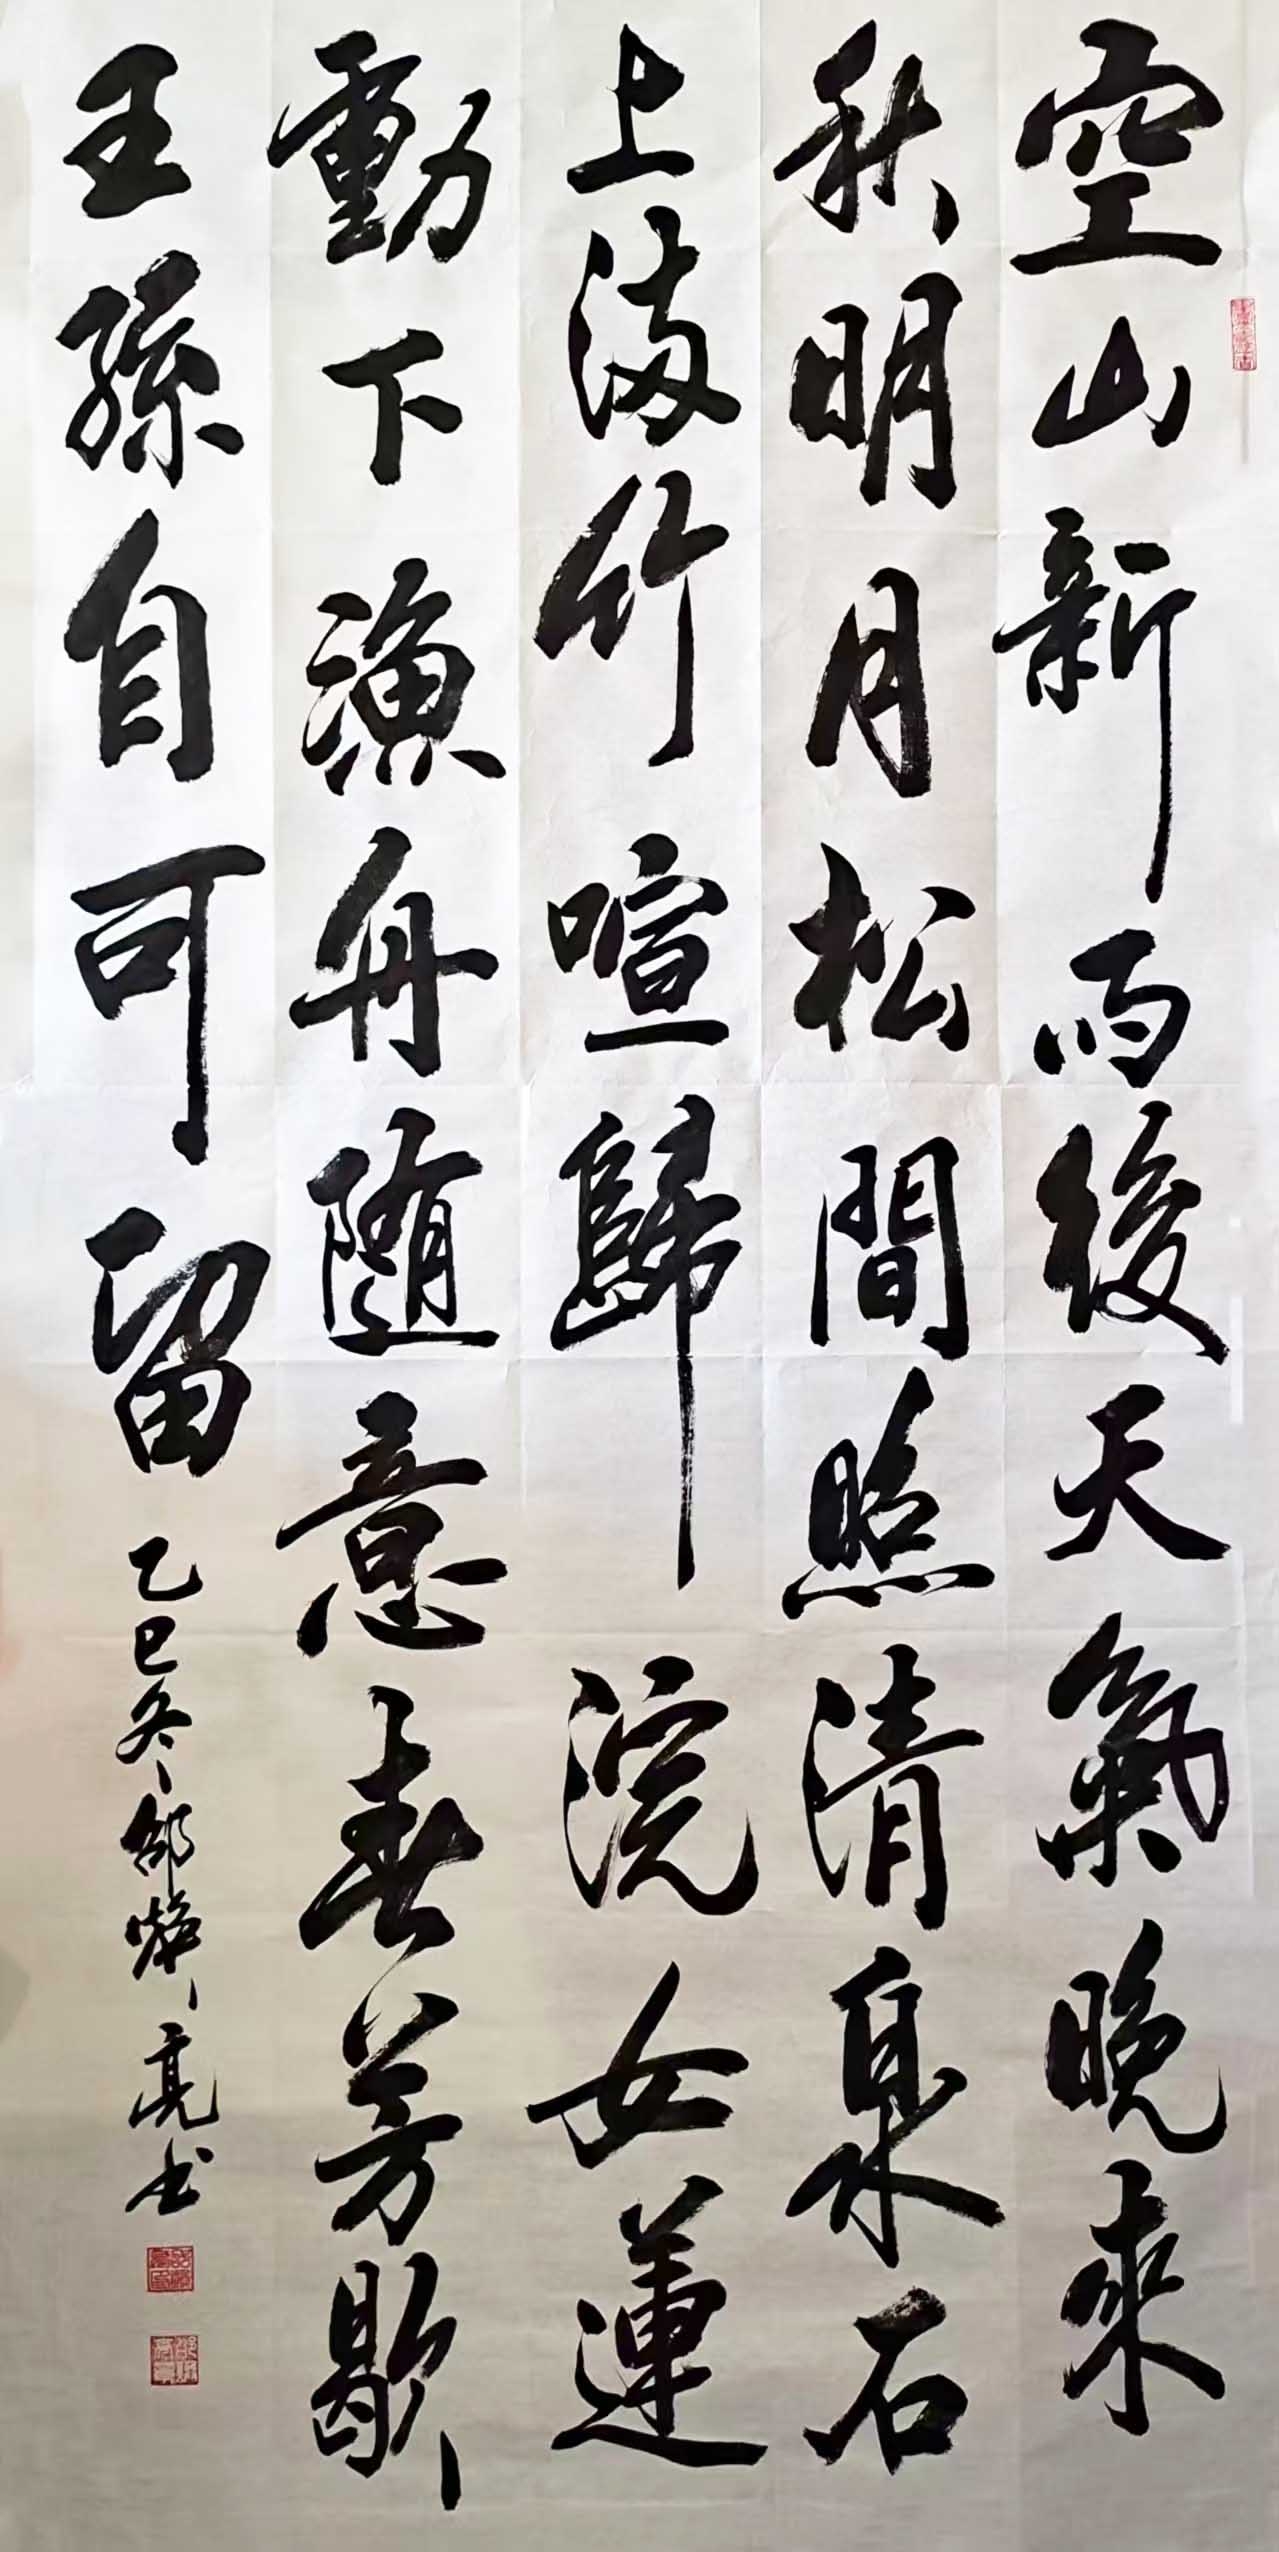 空山新雨後天氣晚來
秋明月松間照清泉石
上流竹喧歸浣女蓮
動下漁舟随意春芳歇
王孫自可留
乙巳冬邵亮书